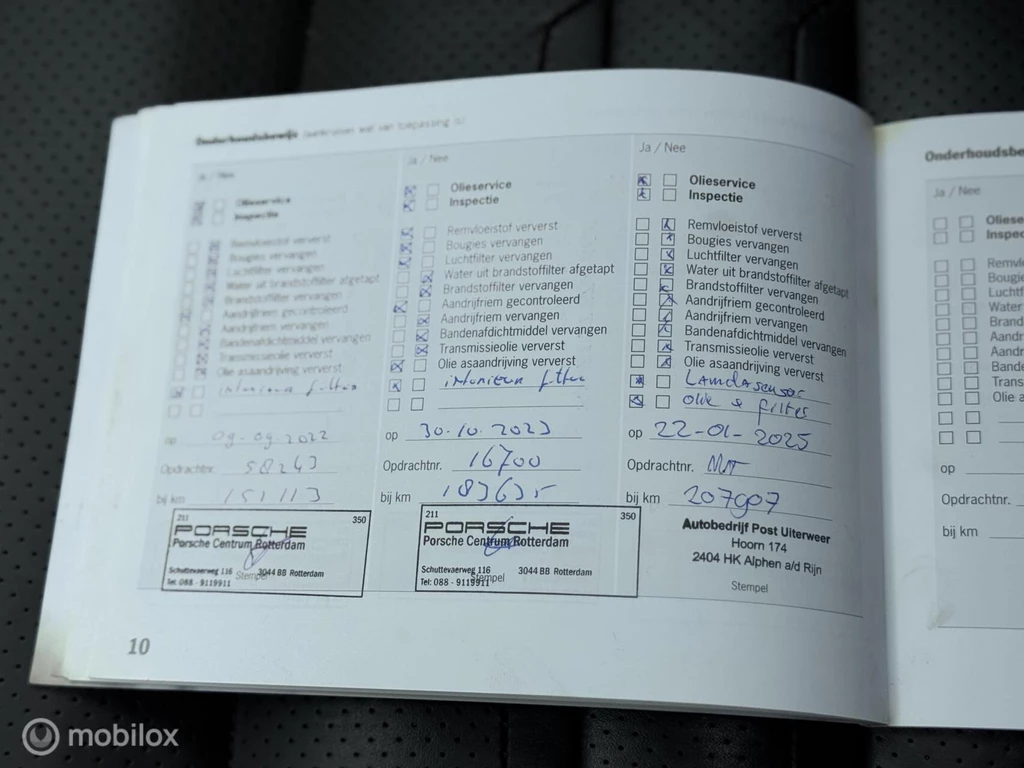 Onderhoudsbewijs (aankruisen wat van toepassing is)
Ja / Nee
Olieservice
Inspectie
Remvloeistof ververst
Bougies vervangen
Luchtfilter vervangen
Water uit brandstoffilter afgetapt
Brandstoffilter vervangen
Aandrijfriem gecontroleerd
Aandrijfriem vervangen
Bandenafdichtmiddel vervangen
Transmissieolie ververst
Olie asaandrijving ververst
interieur filter
op 09-09-2022
Opdrachtnr. 58243
bij km 151113
211
350
PORSCHE
Porsche Centrum Rotterdam
Schuttevaerweg 116 3044 BB Rotterdam
Tel: 088 - 9119911
Stempel
Ja / Nee
Olieservice
Inspectie
Remvloeistof ververst
Bougies vervangen
Luchtfilter vervangen
Water uit brandstoffilter afgetapt
Brandstoffilter vervangen
Aandrijfriem gecontroleerd
Aandrijfriem vervangen
Bandenafdichtmiddel vervangen
Transmissieolie ververst
Olie asaandrijving ververst
interieur filter
op 30-10-2023
Opdrachtnr. 16700
bij km 183635
211
350
PORSCHE
Porsche Centrum Rotterdam
Schuttevaerweg 116 3044 BB Rotterdam
Tel: 088 - 9119911
Stempel
Ja / Nee
Olieservice
Inspectie
Remvloeistof ververst
Bougies vervangen
Luchtfilter vervangen
Water uit brandstoffilter afgetapt
Brandstoffilter vervangen
Aandrijfriem gecontroleerd
Aandrijfriem vervangen
Bandenafdichtmiddel vervangen
Transmissieolie ververst
Olie asaandrijving ververst
Lamdasensor
olie & filter
op 22-01-2025
Opdrachtnr.
bij km 207907
Autobedrijf Post Uiterweer
Hoorn 174
2404 HK Alphen a/d Rijn
Stempel
10
Onderhoudsbe
Ja / Nee
Olies
Inspec
Remvl
Bougi
Luchtf
Water
Brand
Aandr
Aandr
Bande
Trans
Olie a
op
Opdrachtnr.
bij km
mobilox